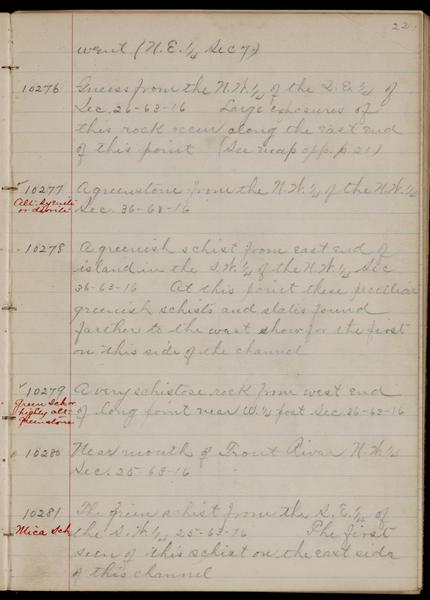 22
went (N.E. ¼ Sec 7)
10276 Gneiss from the N.W. ¼ of the S.E. ¼ of
Sec. 26-63-16 Large exposures of
this rock occur along the east end
of this point (See map opp. p. 21)
10277 A greenstone from the N.W. ¼ of the N.W. ¼
Alt. Syenite or diorite
Sec. 36-63-16
10278 A greenish schist from east end of
island in the S.W. ¼ of the N.W. ¼ Sec
36-63-16 At this point these peculiar
greenish schists and slates found
farther to the west show for the first
on this side of the channel
10279 A very schistose rock from west end
Green Sch or highly alt. greenstone
of long point near W. ¼ post Sec. 36-63-16
10280 Near mouth of Trout River N.W. ¼
Sec. 25-63-16
10281 The green schist from the S.E. ¼ of
Mica Sch
the S.W. ¼ 25-63-16 The first
seen of this schist on the east side
of this channel